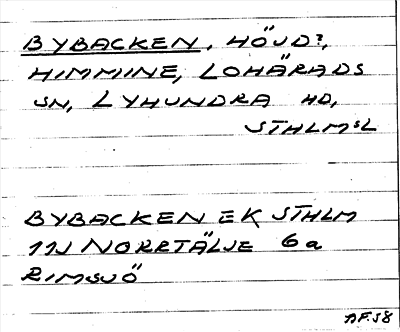 BYBACKEN, HÖJD?,
HIMMINE, LOHÄRADS
SN, LYHUNDRA HD,
STHLMSL
BYBACKEN EK STHLM
11J NORRTÄLJE 6a
RIMSJÖ
AF.58